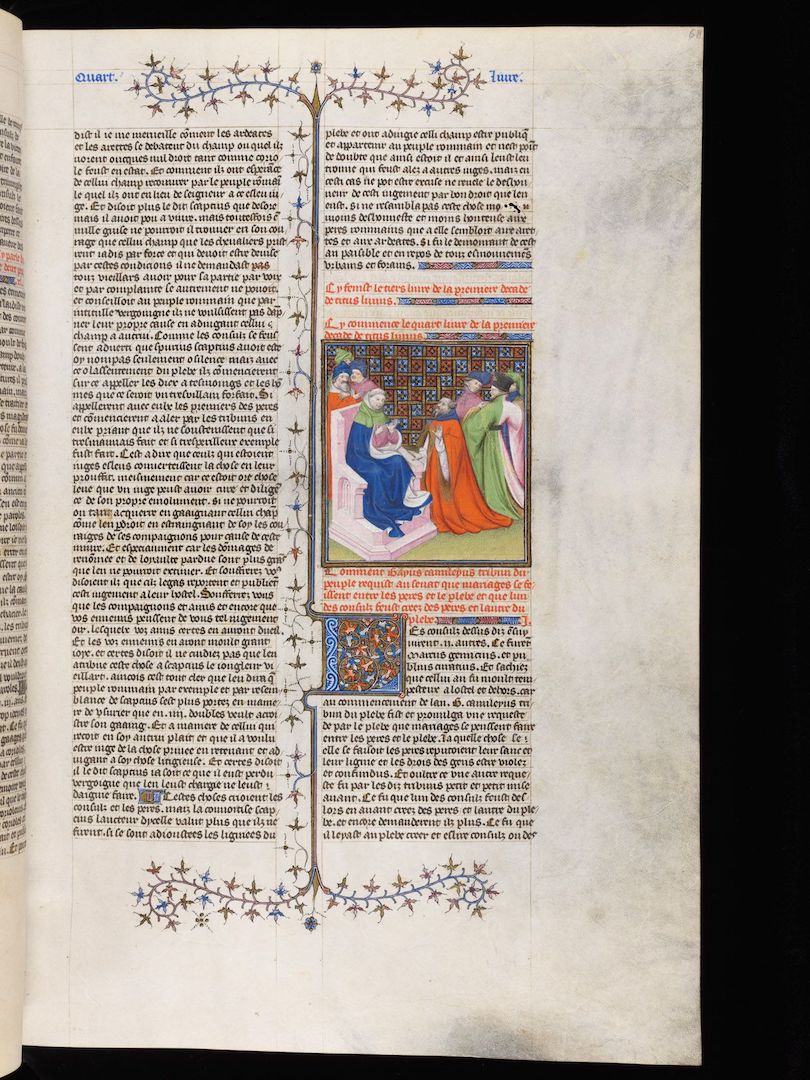 Quart.
liure.
68
dist il ie me merueille cōment les ardeates
et les arettes se debatent du champ ou quel ilz
norent oncques nul droit tant comme corio
le feust en estat. Et comment ilz ont esperāce
de cellui champ recouurer par le peuple rōmaī
le quel ilz ont en lieu de seigneur a ce esleu iu
ge. Et disoit plus le dit scaptius que desor
mais il auoit pou a viure. mais touteffois ē
nulle guise ne pourroit il trouuer en son cou
rage que cellui champ que les cheualiers pris
rent iadis par force et qui deuoit estre deuise
par certes condicions il ne demandast pas
touz vieillars auoit pour sa partie par voix
et par complainte se autrement ne pouoit.
et conseilloit au peuple rommain que par
inutille vergoingne ilz ne voulsissent pas dāp
ner leur propre cause en adiugant cellui
champ a autrui. Comme les consulz se feus
sent aduerti que spurius scaptius auoit este
oy non pas seulement o silence mais auec
ce o lassentement du plebe ilz cōmencierent
sur ce appeller les diex a tesmoings et les hō
mes que ce seroit un tresvillain forfait. Si
appellerent auec eulx les premiers des peres
et cōmencierent a aler par les tribuns en
eulx priant que ilz ne soustenissent que si
tresmauuais fait et si tresperilleux exemple
fust fait. Cest a dire que ceulx qui estoient
iuges esleus conuertissent la chose en leur
prouffit. meismement car ce estoit ore chose
leue que un iuge peust auoir cure et diligē
ce de son propre emolument. si ne pourroit
on tant acquerre en gaaignant cellui chāp
cōme len perdroit en estraingnant de soy les cou
rages de ses compaignons pour cause de ceste
iniure. Et especiaument car les dōmages de
renōmee et de loyaulte perdue sont plus grās
que len ne pourroit extimer. Et soufferez vo9
disoient ilz que cilz legas reportent et publiēt
cest iugement a leur hostel. Soufferrez vous
que les compaignons et amis et encore que
vos ennemis peussent de vous tel iugement
oir. lesquelx voz amis certes en auront dueil.
Et les voz ennemis en auront moult grant
ioye. et certes disoit il ne cuidiez pas que len
atribue ceste chose a scaptius le iongleur vi
eillart. aincois cest tout cler que len dira q̄
peuple rommain par exemple et par resem
blance de scaptius sest plus portez en manie
re de vsurier que en .iiii. doubles veult acroi
stre son gaaing. Et a maniere de cellui qui
recoit en soy autrui plait et que il a voulu
estre iuge de la chose priuee en retenant et ad
iugant a soy chose litigieuse. Et certes disoit
il le dit scaptius ia soit ce que il eust perdu
vergoingne que len leust chargie ne leust
daigne faire. Cestes choses crioient les
consulz et les peres. mais la couuoitise scap
cius laucteur dycelle valut plus que ilz ne
firent. si se sont adioustees les lignees du
plebe et ont adiugie cellui champ estre publiq̄
et appartenir au peuple rommain et nest point
de doubte que ainsi estoit il et ainsi leust len
trouue qui feust alez a autres iuges. mais en
cestui cas ne pot estre excuse ne reuele le deshon
neur de cest iugement par bon droit que len
eust. si ne resambla pas ceste chose mo
moins deshonneste et moins honteuse aux
peres rommains que a elle sembloit aux aret
tes et aux ardeates. Si fu le demourant de cest
an paisible et en repos de touz esmouuemēs
vrbains et forains.
Cy fenist le tiers liure de la premiere decade
de titus liuius.
Cy commence le quart liure de la premiere
decade de titus liuius.
Comment Gayus camileyus tribun du
peuple requist au senat que mariages se fe
issent entre les peres et le plebe et que lun
des consulz feust creez des peres et lautre du
plebe. I.
Es consulz dessus diz ēsuy
uirent .ij. autres. Ce furēt
Marcus genucius. et pu
blius curatius. Et sachiez
que cellui an fu moult tem
pesteux a lostel et dehors. car
au commencement de lan. G. camileyus tri
bun du plebe fist et promulga une requeste
de par le plebe que mariages se peussent faire
entre les peres et le plebe. la quelle chose se
elle se faisoit les peres reputoient leur sanc et
leur lignie et les drois des gens estre violez
et confundus. Et oultre ce une autre reque
ste fu par les diz tribuns petit et petit mise
auant. Ce fu que lun des consulz feust des
lors en auant creez des peres et lautre du ple
be. et encore demanderent ilz plus. Ce fu que
il leust au plebe creer et eslire consulz ou des